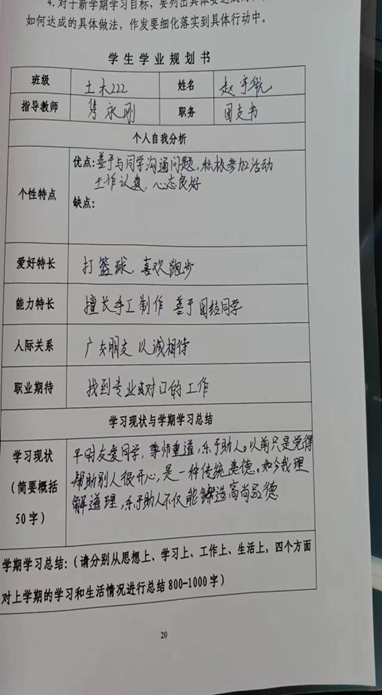 4.对于新学期学习目标,要列出具体要达
如何达成的具体做法,作发要细化落实到具体行动中。
学生学业规划书
班级 土木222 姓名 赵
指导教师 隽永刚 职务 团支书
个人自我分析
个性特点
优点:善于与同学沟通问题,积极参加活动
工作认真 心态良好
缺点:
爱好特长 打篮球 喜欢跑步
能力特长 擅长手工制作 善于团结同学
人际关系 广交朋友 以诚相待
职业期待 找到专业对口的工作
学习现状与学期学习总结
学习现状
(简要概括
50字)
平时友爱同学,尊师重道,乐于助人。以前只是觉得
帮助别人很开心,是一种传统美德。如今我理
解道理,乐于助人不仅能锻造高尚品德
学期学习总结:(请分别从思想上、学习上、工作上、生活上,四个方面
对上学期的学习和生活情况进行总结800-1000字)
20